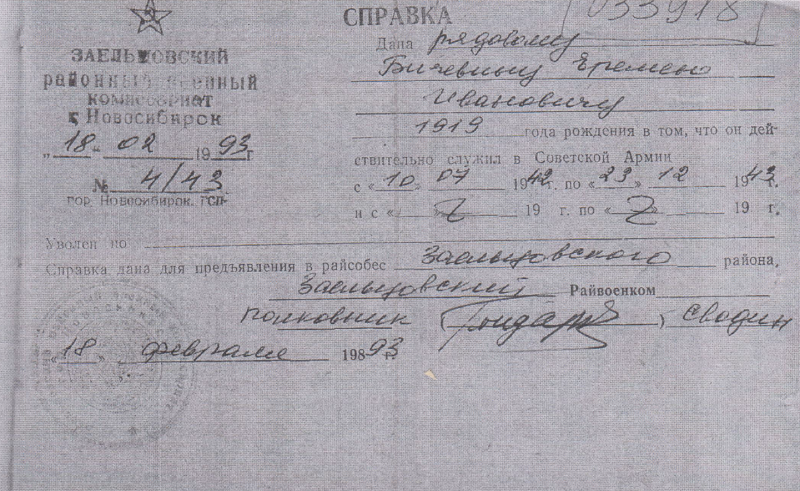 СПРАВКА
033918
ЗАЕЛЬЦОВСКИЙ
районный военный
КОМИССАРИАТ
г. Новосибирск
„18" 02 1993г
№ 4/43
гор Новосибирск, ГСП-
Дана рядовому
Еремею
Ивановичу
1919 года рождения в том, что он дей-
ствительно служил в Советской Армии
с «10» 07 1942 г. по «23» 12 1943 г.
и с « Z 19 г. по « Z 19 г.
Уволен по
Справка дана для предъявления в райсобес Заельцовского района,
Заельцовский Райвоенком
полковник
„18" февраля 19893г.